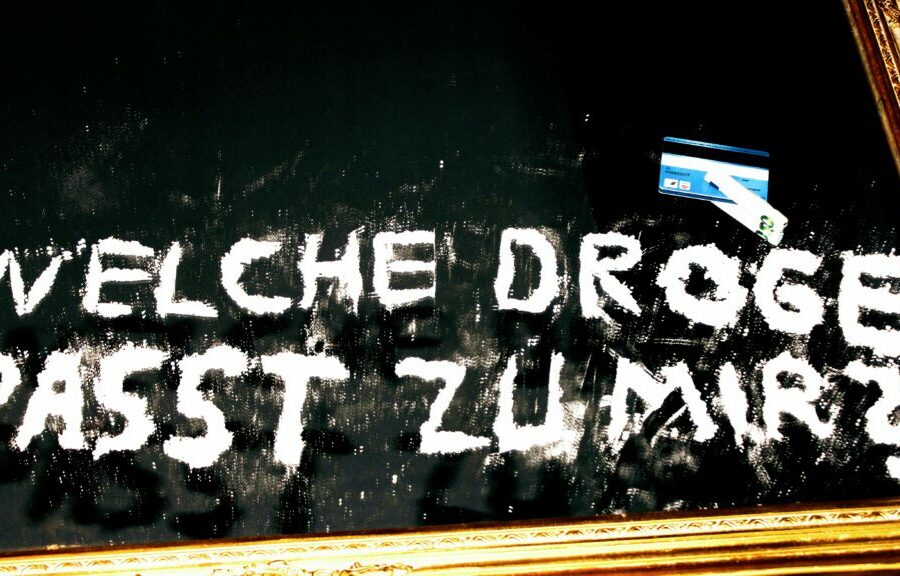 WELCHE DROGE
PASST ZU MIR?